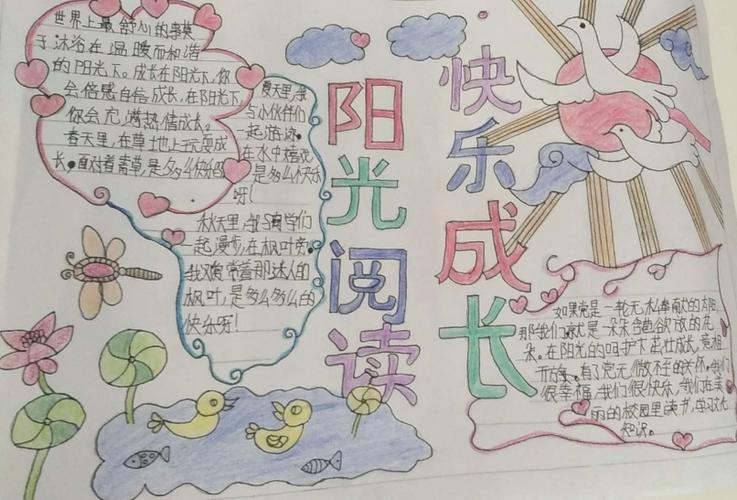 世界上最舒心的事莫
于沐浴在温暖而和谐
的阳光下。成长在阳光下，你
会倍感自信成长，在阳光下，
你会充满热情成长。
春天里，在草地上玩耍成
长。面对着青草，是多么快
夏天里，
与小伙伴们
一起游泳。
在水中嬉戏
是多么快乐
呀！
秋天里，与同学们
一起漫步，在枫叶旁。
我观赏着那迷人的
枫叶，是多么多么的
快乐呀！
阳光阅读
快乐成长
如果党是一轮无私奉献的太阳，
那我们就是一朵朵含苞欲放的花
朵。在阳光的呵护下茁壮成长，竞相
开放。有了党无微不至的关怀，我们
很幸福，我们很快乐，我们在美
丽的校园里读书，学习
知识。